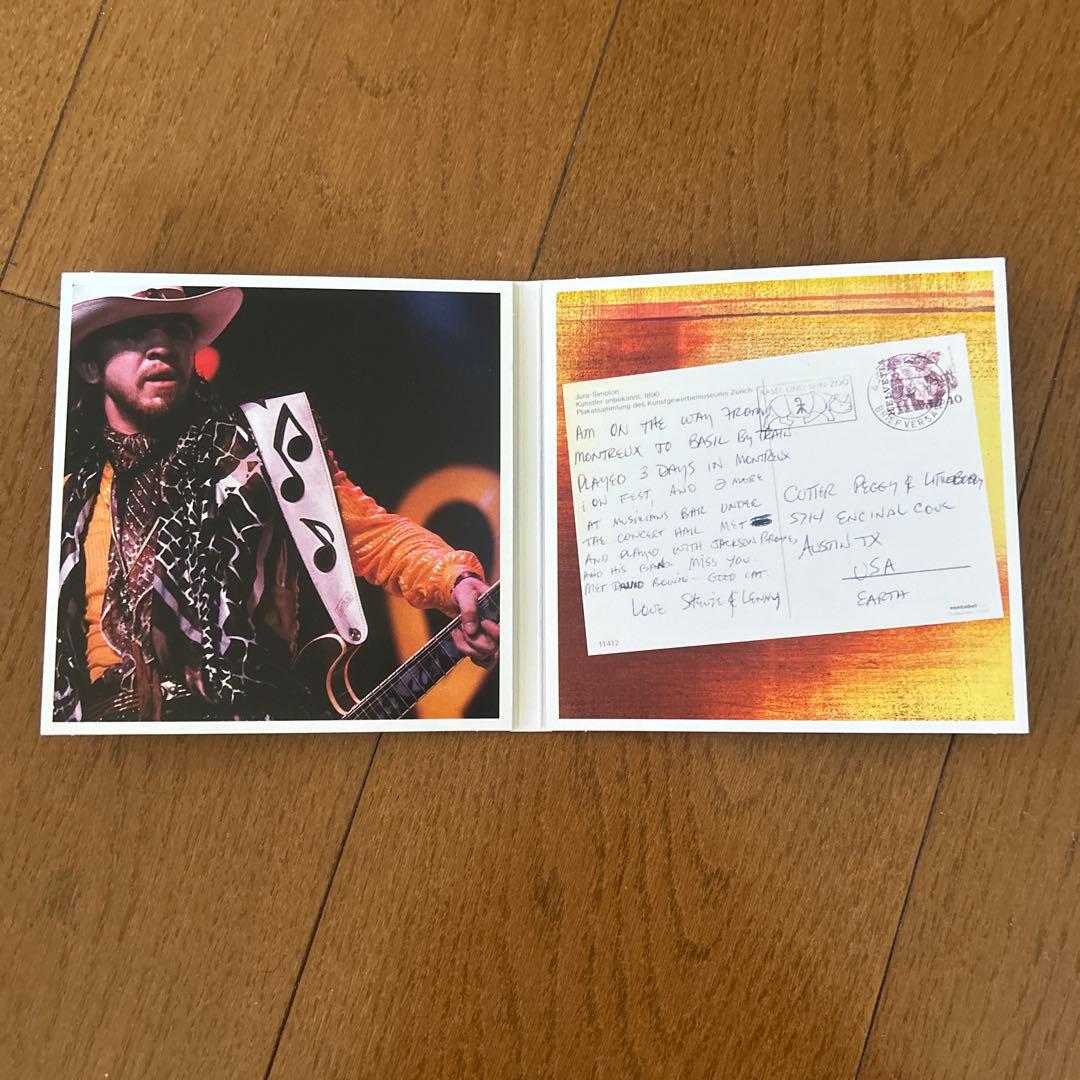 Jura-Simplon
Künstler unbekannt, 1890
Plakatsammlung des Kunstgewerbemuseums Zürich
BASEL UND SEIN ZOO
BRIEFVERSAND
HELVETIA
AM ON THE WAY FROM
MONTREUX TO BASIL By TRAIN
PLAYED 3 DAYS IN MONTREUX
1 ON FEST, AND 2 MORE
AT MUSICIANS BAR UNDER
THE CONCERT HALL MET
AND PLAYED WITH JACKSON BROWNE,
AND HIS BAND. MISS YOU
MET DAVID BOWIE - GOOD CAT.
LOVE STEVIE & LENNY
CUTTER PEGGY & LITTLEBOBBY
5714 ENCINAL COVE
AUSTIN TX
USA
EARTH
11412